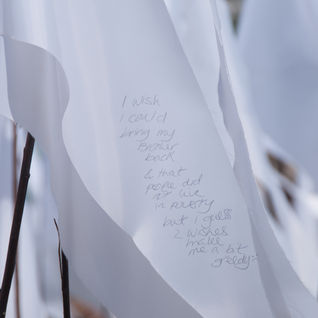 I wish
I could
bring my
Brother
back
& that
people did
not live
in poverty
but I guess
2 wishes
make
me a bit
greedy:-